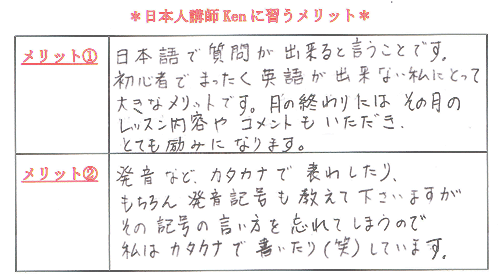 ＊日本人講師Kenに習うメリット＊
メリット①
日本語で質問が出来ると言うことです。
初心者でまったく英語が出来ない私にとって
大きなメリットです。月の終わりにはその月の
レッスン内容やコメントもいただき、
とても励みになります。
メリット②
発音など、カタカナで表わしたり、
もちろん発音記号も教えて下さいますが
その記号の言い方を忘れてしまうので
私はカタカナで書いたり(笑)しています。